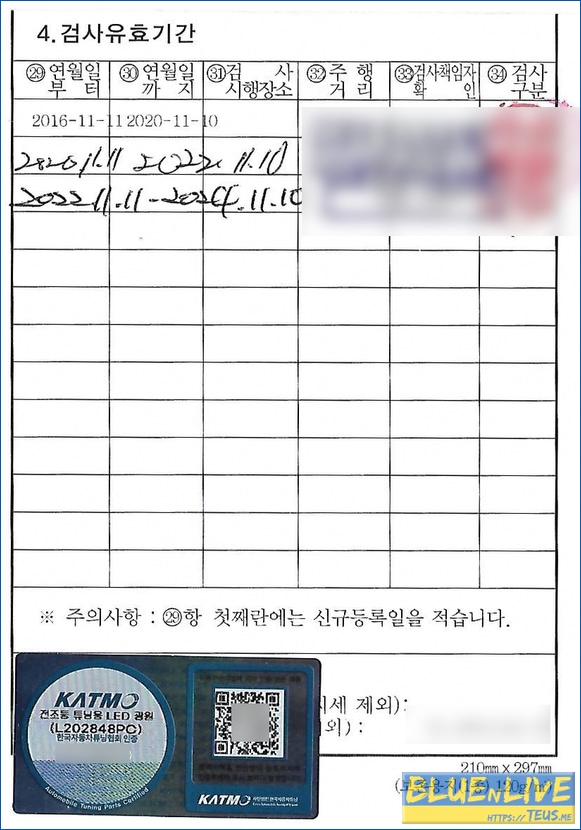 4.검사유효기간
㉙연월일 부터 ㉚연월일 까지 ㉛검사 시행장소 ㉜주행 거리 ㉝검사책임자 확인 ㉞검사 구분
2016-11-11 2020-11-10
2020.11.11 2022.11.10
2022.11.11-2024.11.10
※ 주의사항 : ㉙항 첫째란에는 신규등록일을 적습니다.
세 제외):
외) :
KATMO
전조등 튜닝용 LED 광원
(L202848PC)
한국자동차튜닝협회 인증
Automobile Tuning Parts Certified
KATMO
210㎜×297㎜
120g/㎡)
BLUEnLIVE
HTTPS://TEUS.ME